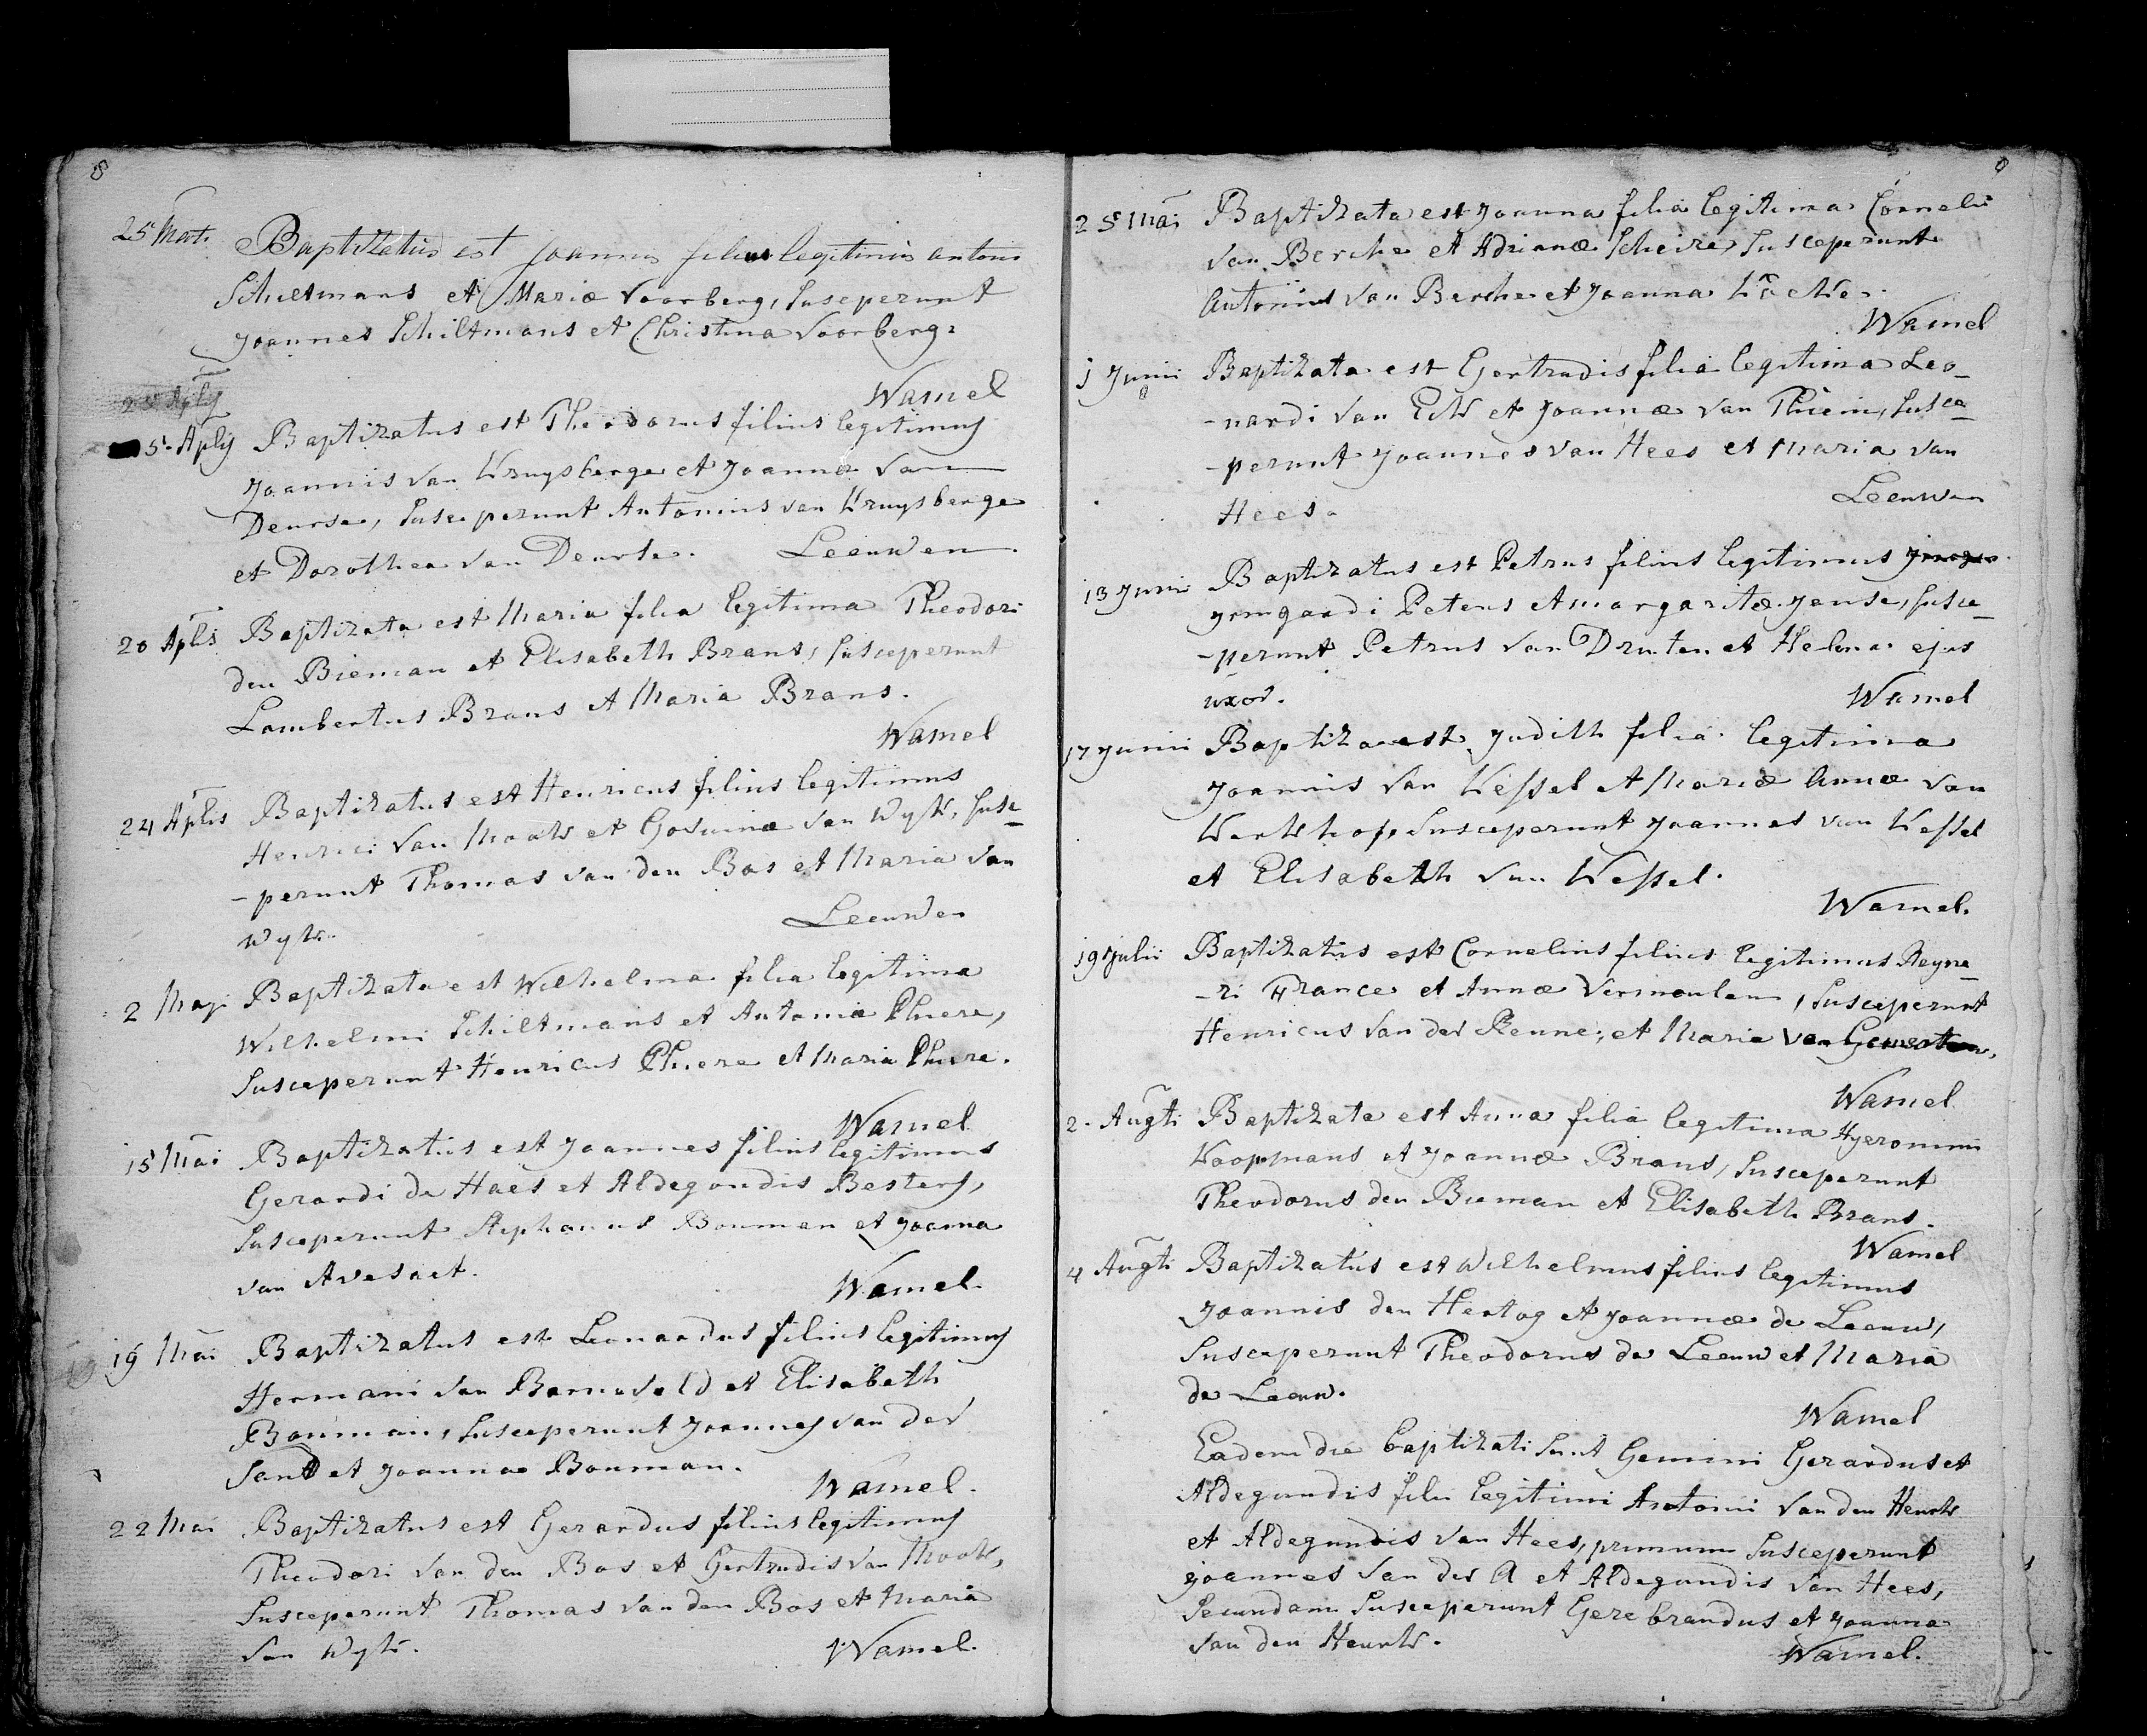 8
25 Mart. Baptizatus est Joannes filius legitimus antoni
Schiltmans et Mariæ Voorberg, Susceperunt
Joannes Schiltmans et Christina Voorberg.
Wamel
25 Aplij
5 Aplij Baptizatus est Theodorus filius legitimus
Joannis van Kruysberge et Joannæ van
Deurse, Susceperunt Antonius van Kruysberge
et Dorothea van Deurse. Leeuwen
20 Aplis Baptizata est Maria filia legitima Theodori
den Bieman et Elisabeth Brans, susceperunt
Lambertus Brans et Maria Brans.
Wamel
24 Aplis Baptizatus est Henricus filius legitimus
Henrici van Mook et Gosuinæ van Wyk, susce
-perunt Thomas van den Bos et Maria van
Wyk. Leeuwen
2 Maji Baptizata est Wilhelma filia legitima
Wilhelmi Schiltmans et Antonia Pluere,
Susceperunt Henricus Pluere et Maria Pluere.
Wamel
15 Mai Baptizatus est Joannes filius legitimus
Gerardi de Haes et Aldegondis Besters,
Susceperunt Stephanus Bouman et Joanna
van Avesaet. Wamel.
19 19 Mai Baptizatus est Leonardus filius legitimus
Hermani van Barneveld et Elisabeth
Bouman, Susceperunt Joannes van der
Sant et Joanna Bouman.
Wamel.
22 Mai Baptizatus est Gerardus filius legitimus
Theodori van den Bos et Gertrudis van Mook,
Susceperunt Thomas van den Bos et Maria
van Wyk. Wamel.
25 Mai Baptizata est Joanna filia legitima Cornelii
van Berche et Adrianæ Scheire, Susceperunt
Antonius van Berche et Joanna
Wamel
1 Junii Baptizata est Gertrudis filia legitima Leo-
-nardi van Eck et Joannæ van Thiem, Susce-
-perunt Joannes van Hees et Maria van
Hees. Leeuwen
13 Junii Baptizatus est Petrus filius legitimus
Jrmgardi Peters et Margaritæ Janse, Susce-
-perunt Petrus van Druten et Helena ejus
uxor. Wamel
17 Junii Baptiza est Judith filia legitima
Joannis van Kessel et Mariæ Annæ van
Werkhop Susceperunt Joannes van Kessel
et Elisabeth van Kessel.
Wamel.
19 Julii Baptizatus est Cornelius filius legitimus Reyne
-ri France et Annæ Vermeulen, Susceperunt
Henricus van der Renne, et Maria van
Wamel
2. Augti Baptizata est Anna filia legitima Hyeronimi
Koopmans et Joannæ Brans, Susceperunt
Theodorus den Bieman et Elisabeth Brans.
Wamel
4 Augti Baptizatus est Wilhelmus filius legitimus
Joannis den Hertog et Joannæ de Leeuw,
Susceperunt Theodorus de Leeuw et Maria
de Leeuw.
Wamel
Eadem die baptizati sunt Gemini Gerardus et
Aldegundis filii legitimi Antonii van den Heuvk
et Aldegundis van Hees, primum Susceperunt
Joannes van der A et Aldegundis van Hees,
Secundam Susceperunt Gerebrandus et Joanna
van den Heuvk.
Wamel.